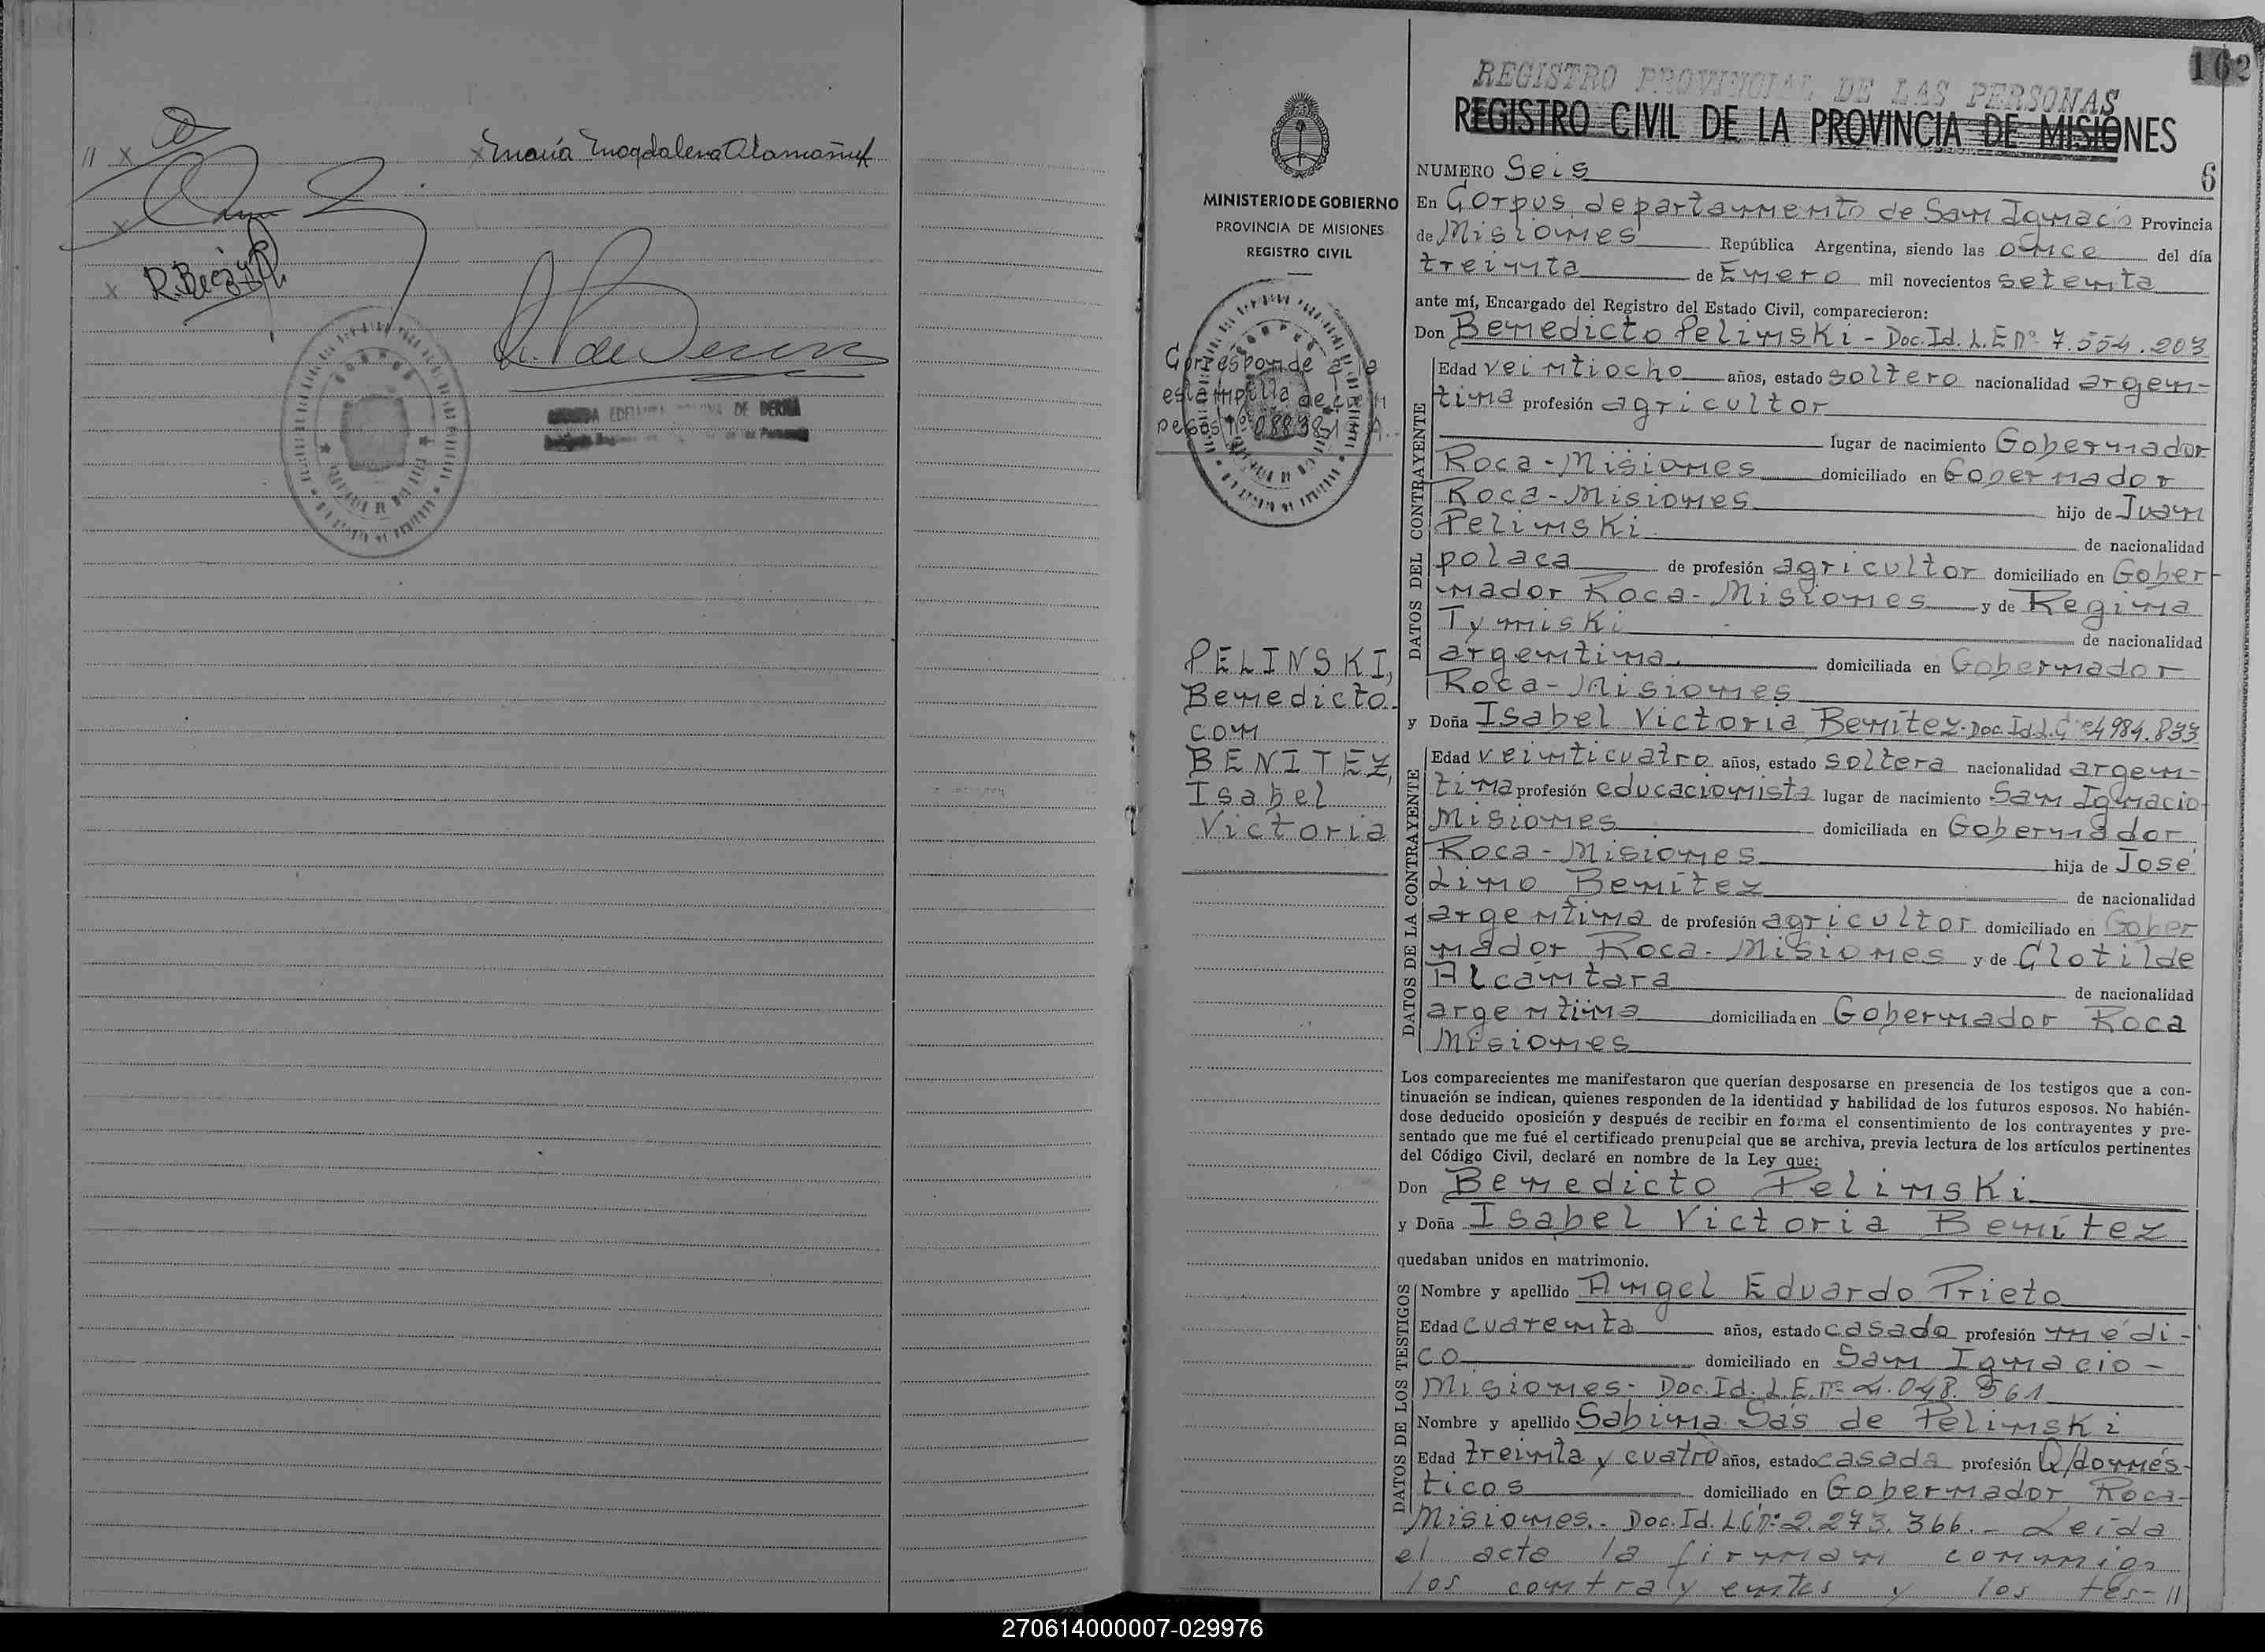 María Magdalena
R. Be
162
REGISTRO PROVINCIAL DE LAS PERSONAS
REGISTRO CIVIL DE LA PROVINCIA DE MISIONES
MINISTERIO DE GOBIERNO
PROVINCIA DE MISIONES
REGISTRO CIVIL
Corresponde a la
estampilla de cien
pesos nº
PELINSKI,
Benedicto.
con
BENITEZ,
Isabel
Victoria
NUMERO Seis 6
En Corpus, departamento de San Ignacio Provincia
de Misiones República Argentina, siendo las once del día
treinta de Enero mil novecientos setenta
ante mí, Encargado del Registro del Estado Civil, comparecieron:
Don Benedicto Pelinski - Doc. Id. L.E nº 7.554.203
DATOS DEL CONTRAYENTE
Edad veintiocho años, estado soltero nacionalidad argen-
tina profesión agricultor
lugar de nacimiento Gobernador
Roca - Misiones domiciliado en Gobernador
Roca - Misiones hijo de Juan
Pelinski de nacionalidad
polaca de profesión agricultor domiciliado en Gober-
nador Roca - Misiones y de Regina
Tymiski de nacionalidad
argentina. domiciliada en Gobernador
Roca - Misiones
y Doña Isabel Victoria Benítez. Doc. Id. L.C 4.984.833
DATOS DE LA CONTRAYENTE
Edad veinticuatro años, estado soltera nacionalidad argen-
tina profesión educacionista lugar de nacimiento San Ignacio
Misiones domiciliada en Gobernador
Roca - Misiones hija de José
Lino Benítez de nacionalidad
argentina de profesión agricultor domiciliado en Gober
nador Roca - Misiones y de Clotilde
Alcántara de nacionalidad
argentina domiciliada en Gobernador Roca
Misiones
Los comparecientes me manifestaron que querían desposarse en presencia de los testigos que a con-
tinuación se indican, quienes responden de la identidad y habilidad de los futuros esposos. No habién-
dose deducido oposición y después de recibir en forma el consentimiento de los contrayentes y pre-
sentado que me fué el certificado prenupcial que se archiva, previa lectura de los artículos pertinentes
del Código Civil, declaré en nombre de la Ley que:
Don Benedicto Pelinski
y Doña Isabel Victoria Benítez
quedaban unidos en matrimonio.
DATOS DE LOS TESTIGOS
Nombre y apellido Angel Eduardo Prieto
Edad cuarenta años, estado casado profesión médi-
co domiciliado en San Ignacio -
Misiones - Doc. Id. L.E. nº 4.048.561
Nombre y apellido Sabina Sas de Pelinski
Edad treinta y cuatro años, estado casada profesión Q/domés-
ticos domiciliado en Gobernador Roca-
Misiones. - Doc. Id. LC nº 2.273.366. - Leída
el acta la firman conmigo
los contrayentes y los tes- //
270614000007-029976